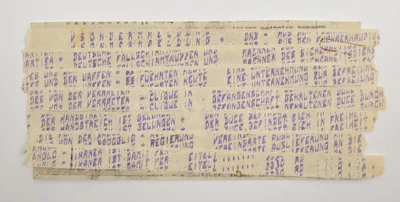 SONDERMELDUNG + DNB - AUS DEM FUEHRERHAUPTQU
ARTIER + DEUTSCHE FALLSCHIRMTRUPPEN UND MAENNER DES SICHE
ES UND DER WAFFEN - SS FUEHRTEN HEUTE EINE UNTERNEHMUNG ZUR BEFREIUNG
DES VON DER VERRAETER - CLIQUE IN GEFANGENSCHAFT GEHALTENEN DUCE DURCH
DER HANDSTREICH IST GELUNGEN + DER DUCE BEFINDET SICH IN FREIHE
DIE VON DER BADOGLIO - REGIERUNG VEREINBARTE AUSLIEFERUNG AN DIE
ANGLO - IKANER IST DAMIT VER EITELT